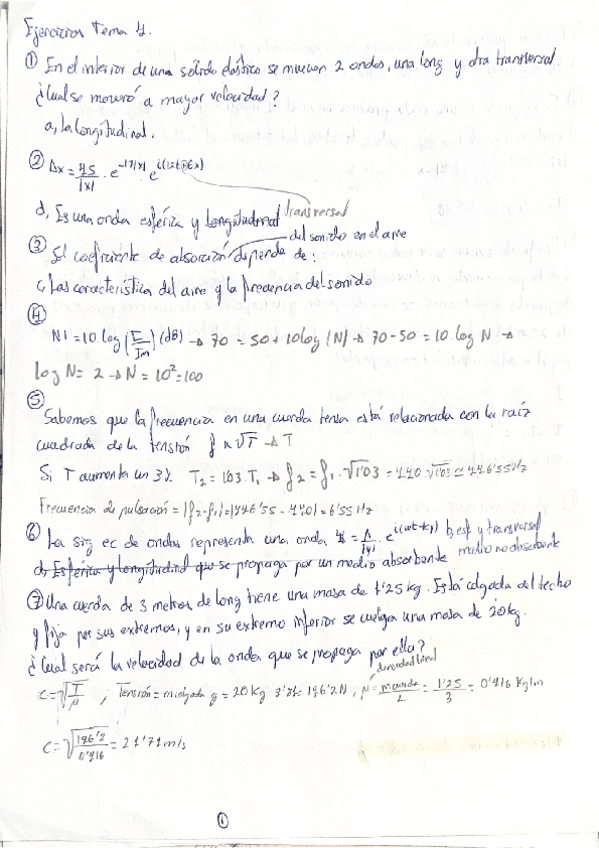 Ejercicios Tema 4.
① En el interior de un sólido elástico se mueven 2 ondas, una long y otra transversal
¿Cual se moverá a mayor velocidad?
a, la longitudinal.
② Δx = 45/|x| · e^-17|x| e^i(12t-6x)
d, Es una onda esférica y longitudinal transversal
③ El coeficiente de absorción del sonido en el aire depende de:
c, Las característica del aire y la frecuencia del sonido
④
NI = 10 log(I/Im) (dB) → 70 = 50 + 10 log(N) → 70 - 50 = 10 log N →
log N = 2 → N = 10² = 100
⑤
Sabemos que la frecuencia en una cuerda tensa está relacionada con la raíz
cuadrada de la tensión f ∝ √T → T
Si T aumenta un 3% T₂ = 1'03·T₁ → f₂ = f₁·√1'03 = 440·√1'03 ≃ 446'55Hz
Frecuencia de pulsación = |f₂-f₁| = |446'55 - 440| = 6'55Hz
⑥ La sig ec de ondas representa una onda = A/|y| · e^i(wt-ky) b, esf y transversal
d, Esférica y longitudinal que se propaga por un medio absorbente medio no absorbente
⑦ Una cuerda de 3 metros de long tiene una masa de 1'25kg. Está colgada del techo
y fija por sus extremos, y en su extremo inferior se cuelga una masa de 20kg.
¿Cual será la velocidad de la onda que se propaga por ella?
densidad lineal
c = √T/μ ; Tensión = m colgada g = 20kg 9'81 = 196'2N ; μ = m cuerda/L = 1'25/3 = 0'416 kg/m
c = √196'2/0'416 = 21'71m/s
①